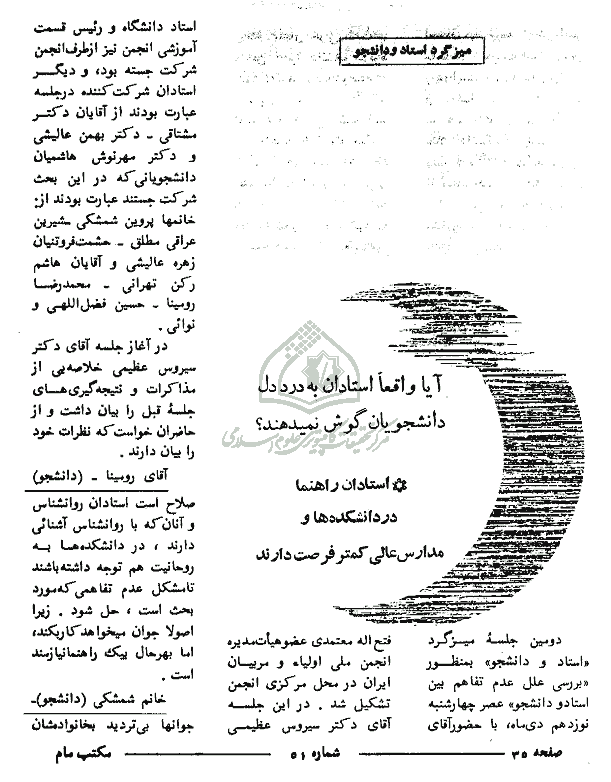 میزگرد استاد و دانشجو
آیا واقعاً استادان به درد دل
دانشجویان گوش نمیدهند؟
استادان راهنما
در دانشکده‌ها و
مدارس عالی کمتر فرصت دارند
دومین جلسهٔ میزگرد
«استاد و دانشجو» بمنظور
«بررسی علل عدم تفاهم بین
استاد و دانشجو» عصر چهارشنبه
نوزدهم دی‌ماه، با حضور آقای
فتح‌اله معتمدی عضو هیأت مدیره
انجمن ملی اولیاء و مربیان
ایران در محل مرکزی انجمن
تشکیل شد. در این جلسه
آقای دکتر سیروس عظیمی
استاد دانشگاه و رئیس قسمت
آموزشی انجمن نیز از طرف انجمن
شرکت جسته بود، و دیگر
استادان شرکت‌کننده در جلسه
عبارت بودند از آقایان دکتر
مشتاقی ـ دکتر بهمن عالیشی
و دکتر مهرنوش هاشمیان
دانشجویانی که در این بحث
شرکت جستند عبارت بودند از:
خانمها پروین شمشکی ـ شیرین
عراقی مطلق ـ حشمت فروتنیان
زهره عالیشی و آقایان هاشم
رکن تهرانی ـ محمدرضا
رومینا ـ حسین فضل‌اللهی و
نوائی.
در آغاز جلسه آقای دکتر
سیروس عظیمی خلاصه‌یی از
مذاکرات و نتیجه‌گیری‌های
جلسهٔ قبل را بیان داشت و از
حاضران خواست که نظرات خود
را بیان دارند.
آقای رومینا ـ (دانشجو)
صلاح است استادان روانشناس
و آنان که با روانشناس آشنائی
دارند، در دانشکده‌ها به
روحانیت هم توجه داشته باشند
تا مشکل عدم تفاهمی که مورد
بحث است، حل شود. زیرا
اصولا جوان میخواهد کار بکند،
اما بهرحال بیک راهنما نیازمند
است.
خانم شمشکی (دانشجو)ـ
جوانها بی‌تردید بخانواده‌شان
صفحه ۳۵
شماره ۵۱
مکتب مام
مرکز تحقیقات کامپیوتری علوم اسلامی